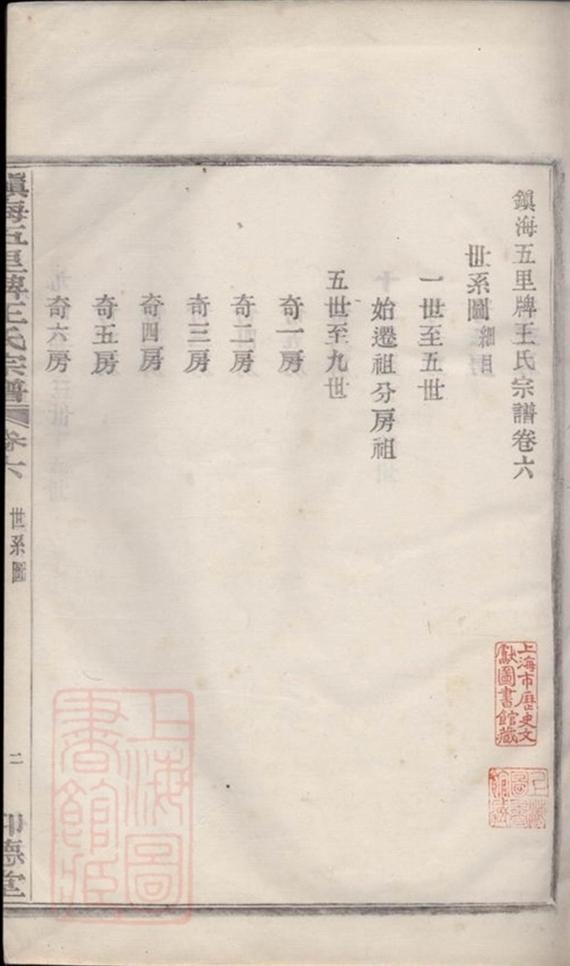 鎮海五里牌王氏宗譜卷六
世系圖細目
一世至五世
始遷祖分房祖
五世至九世
奇一房
奇二房
奇三房
奇四房
奇五房
奇六房
鎮海五里牌王氏宗譜
卷六
世系圖
二
上海市歷史文獻圖書館藏
上海圖書館藏